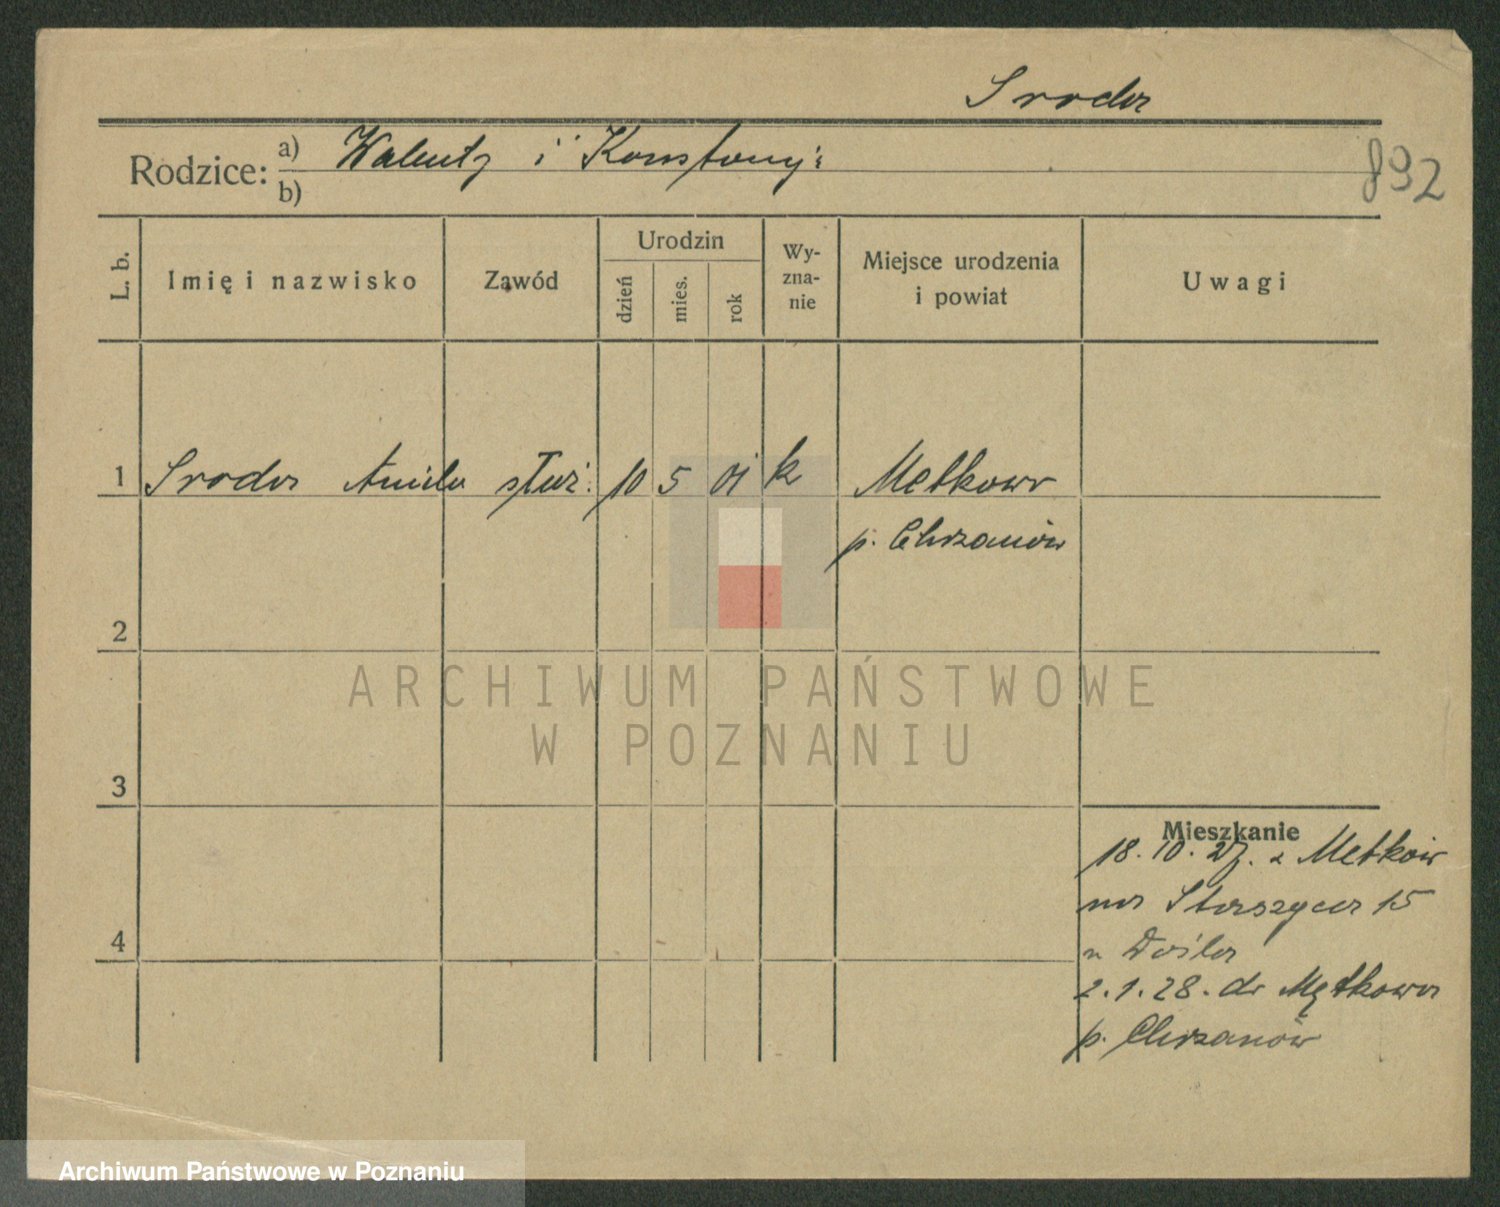 Sroda
Rodzice: a) Walenty i Konstancji
b)
892
L. b.
Imię i nazwisko
Zawód
Urodzin
dzień
mies.
rok
Wy-
zna-
nie
Miejsce urodzenia
i powiat
Uwagi
1 Sroda Aniela służ. 10 5 01 k Metkow
p. Chrzanów
2
3
4
Mieszkanie
18.10.27. z Metków
na Staszyca 15
2.1.28. do Mętkowa
p. Chrzanów
ARCHIWUM PAŃSTWOWE
W POZNANIU
Archiwum Państwowe w Poznaniu